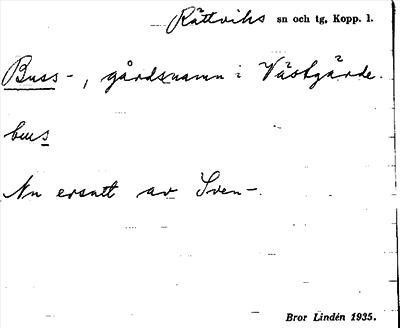 Rättviks sn och tg, Kopp. l.
Buss-, gårdsnamn i Västgärde.
bus
Nu ersatt av Sven-.
Bror Lindén 1935.